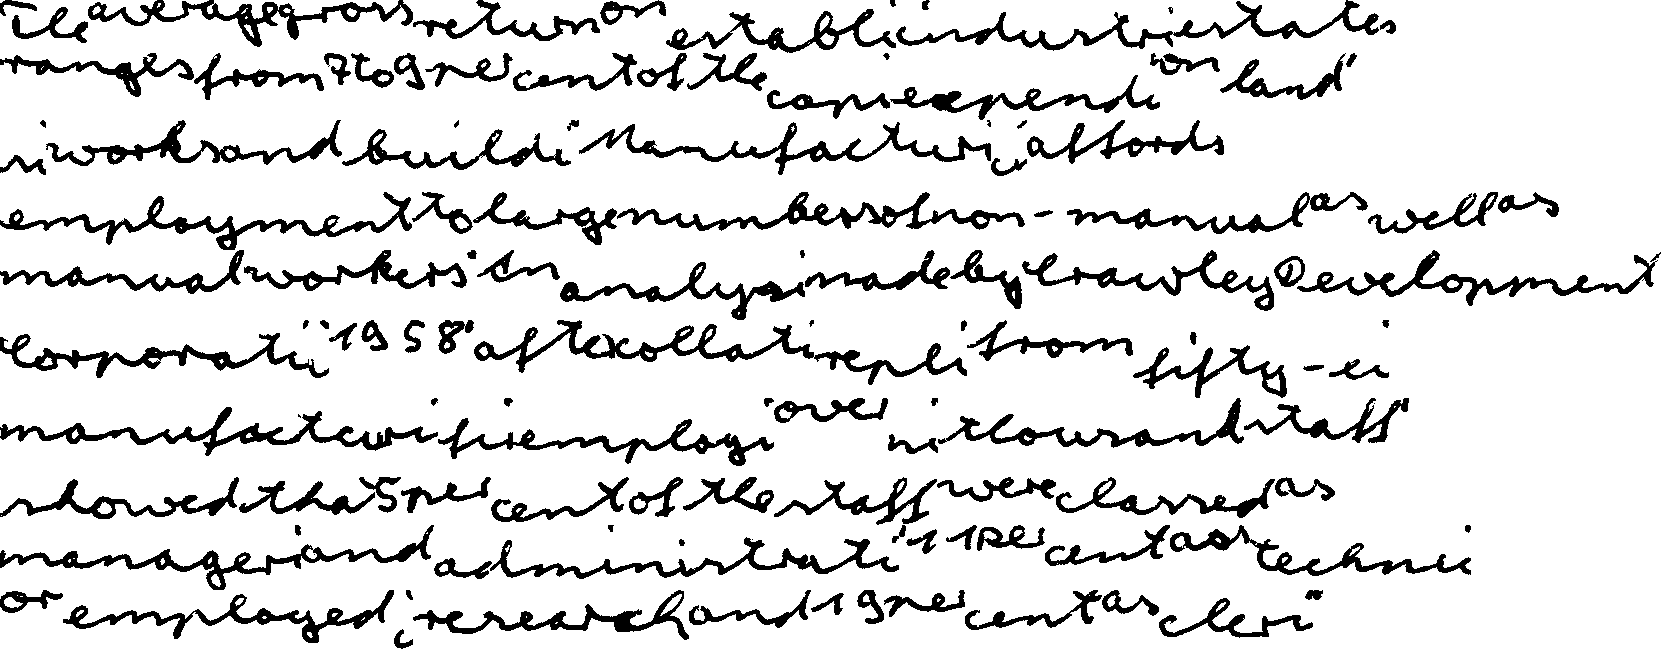 The average gross return on establi industri estates
ranges from 7 to 9 per cent of the capi expendi on land
si works and buildi Manufacturi affords
employment to large numbers of non-manual as well as
manual workers In analysi made by Crawley Development
Corporati 1958 afte collati repli from fifty-ei
manufacturi fir employi over ni thousand staff
showed that 5 per cent of the staff were classed as
manageri and administrati 11 per cent as technici
or employed i research and 19 per cent as cleri